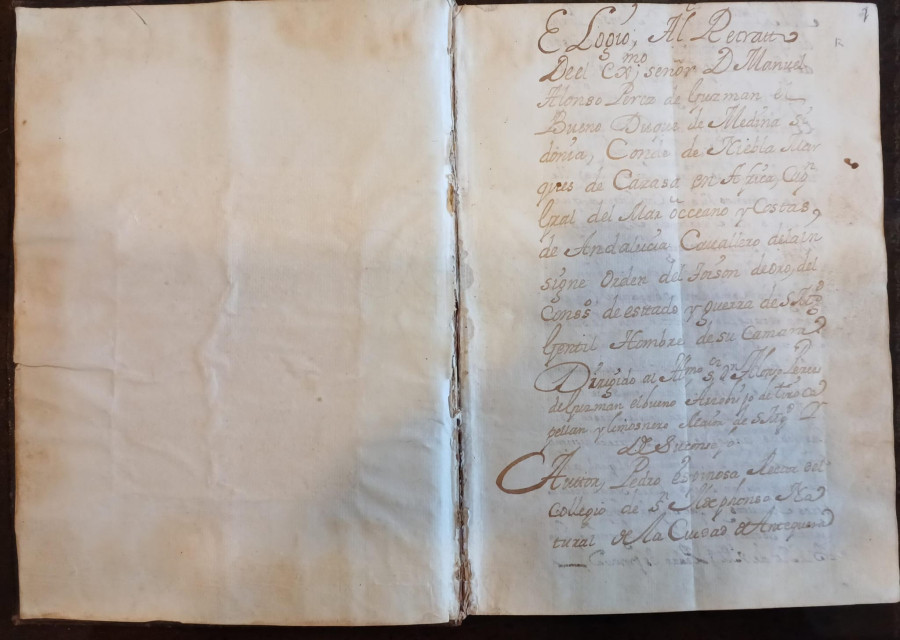 1
R
ELogio, Al Retrato
Deel Exmo, señor D Manuel
Alonso Perez de Guzman el
Bueno Duque de Medina si
donia, Conde de Niebla Mar
ques de Cazasa en Africa, Capn
Gral del Mar oceano y Costas,
de Andalucia Cavallero delain
signe Orden del Toison de oro, del
Conso de estado y guerra de S Mgd
Gentil Hombre de su Camara
Dirigido al Illmo Sr Dn Alonso Perez
de Guzman elbueno Arzobispo de Tiro Ca
pellan y limosnero Maior de S Mgd
Autor, Pedro Espinosa, Retor del
Collegio de Sn Ildephonso Na
tural de la Ciudad de Antequera